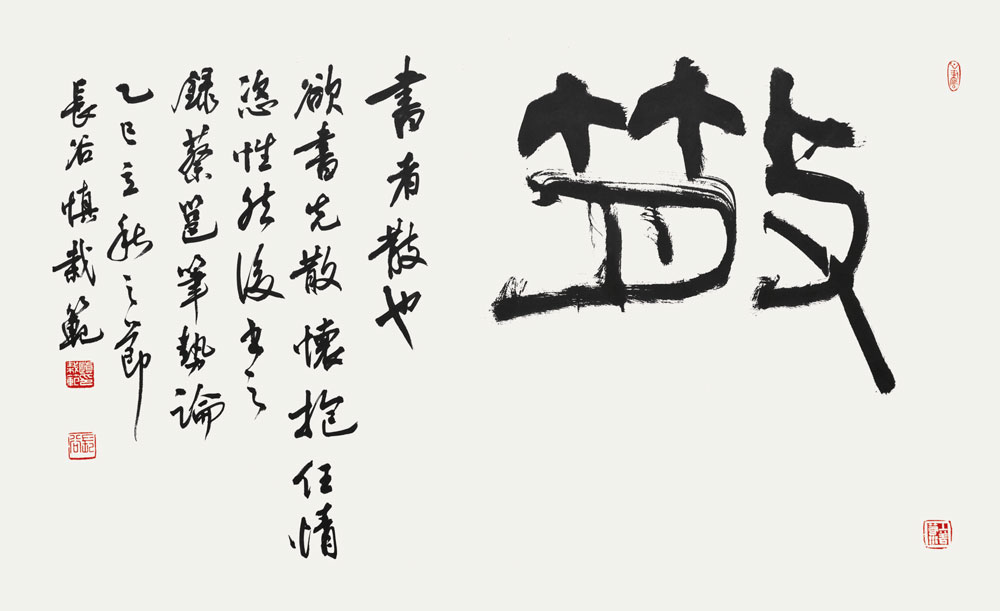 散
書者散也
欲書先散懷抱任情
恣性然後書之
録蔡邕筆勢論
乙巳立秋之節
長谷慎裁範